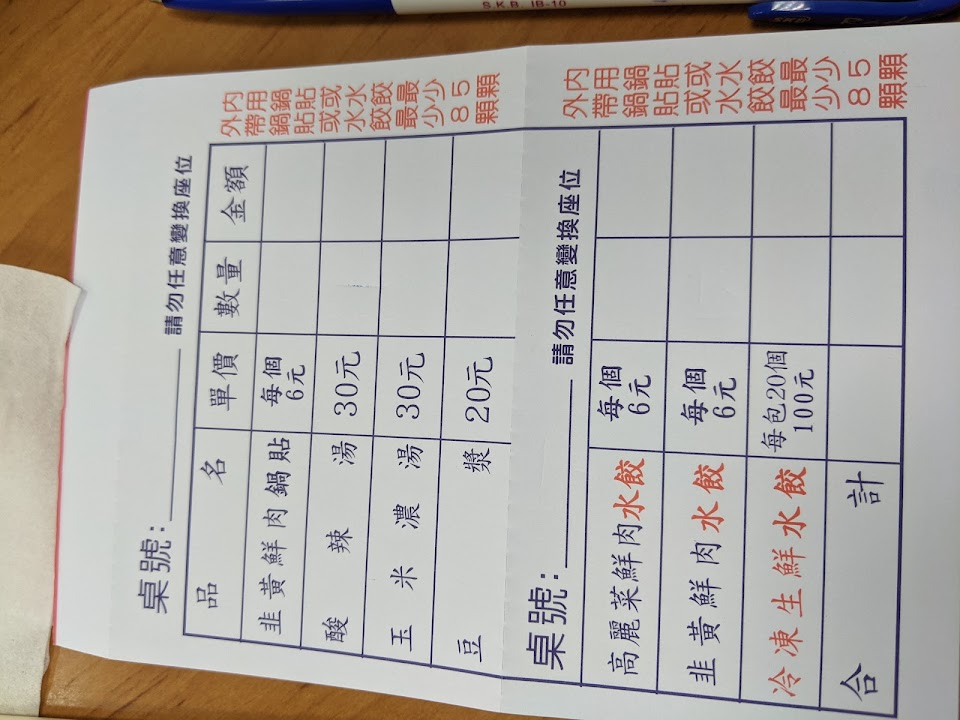 S.K.B. IB-10
SKB
桌號：請勿任意變換座位
品名 單價 數量 金額
韭黃鮮肉鍋貼 每個6元
酸辣湯 30元
玉米濃湯 30元
豆漿 20元
內用鍋貼或水餃最少5顆
外帶鍋貼或水餃最少8顆
桌號：請勿任意變換座位
高麗菜鮮肉水餃 每個6元
韭黃鮮肉水餃 每個6元
冷凍生鮮水餃 每包20個100元
合計
內用鍋貼或水餃最少5顆
外帶鍋貼或水餃最少8顆